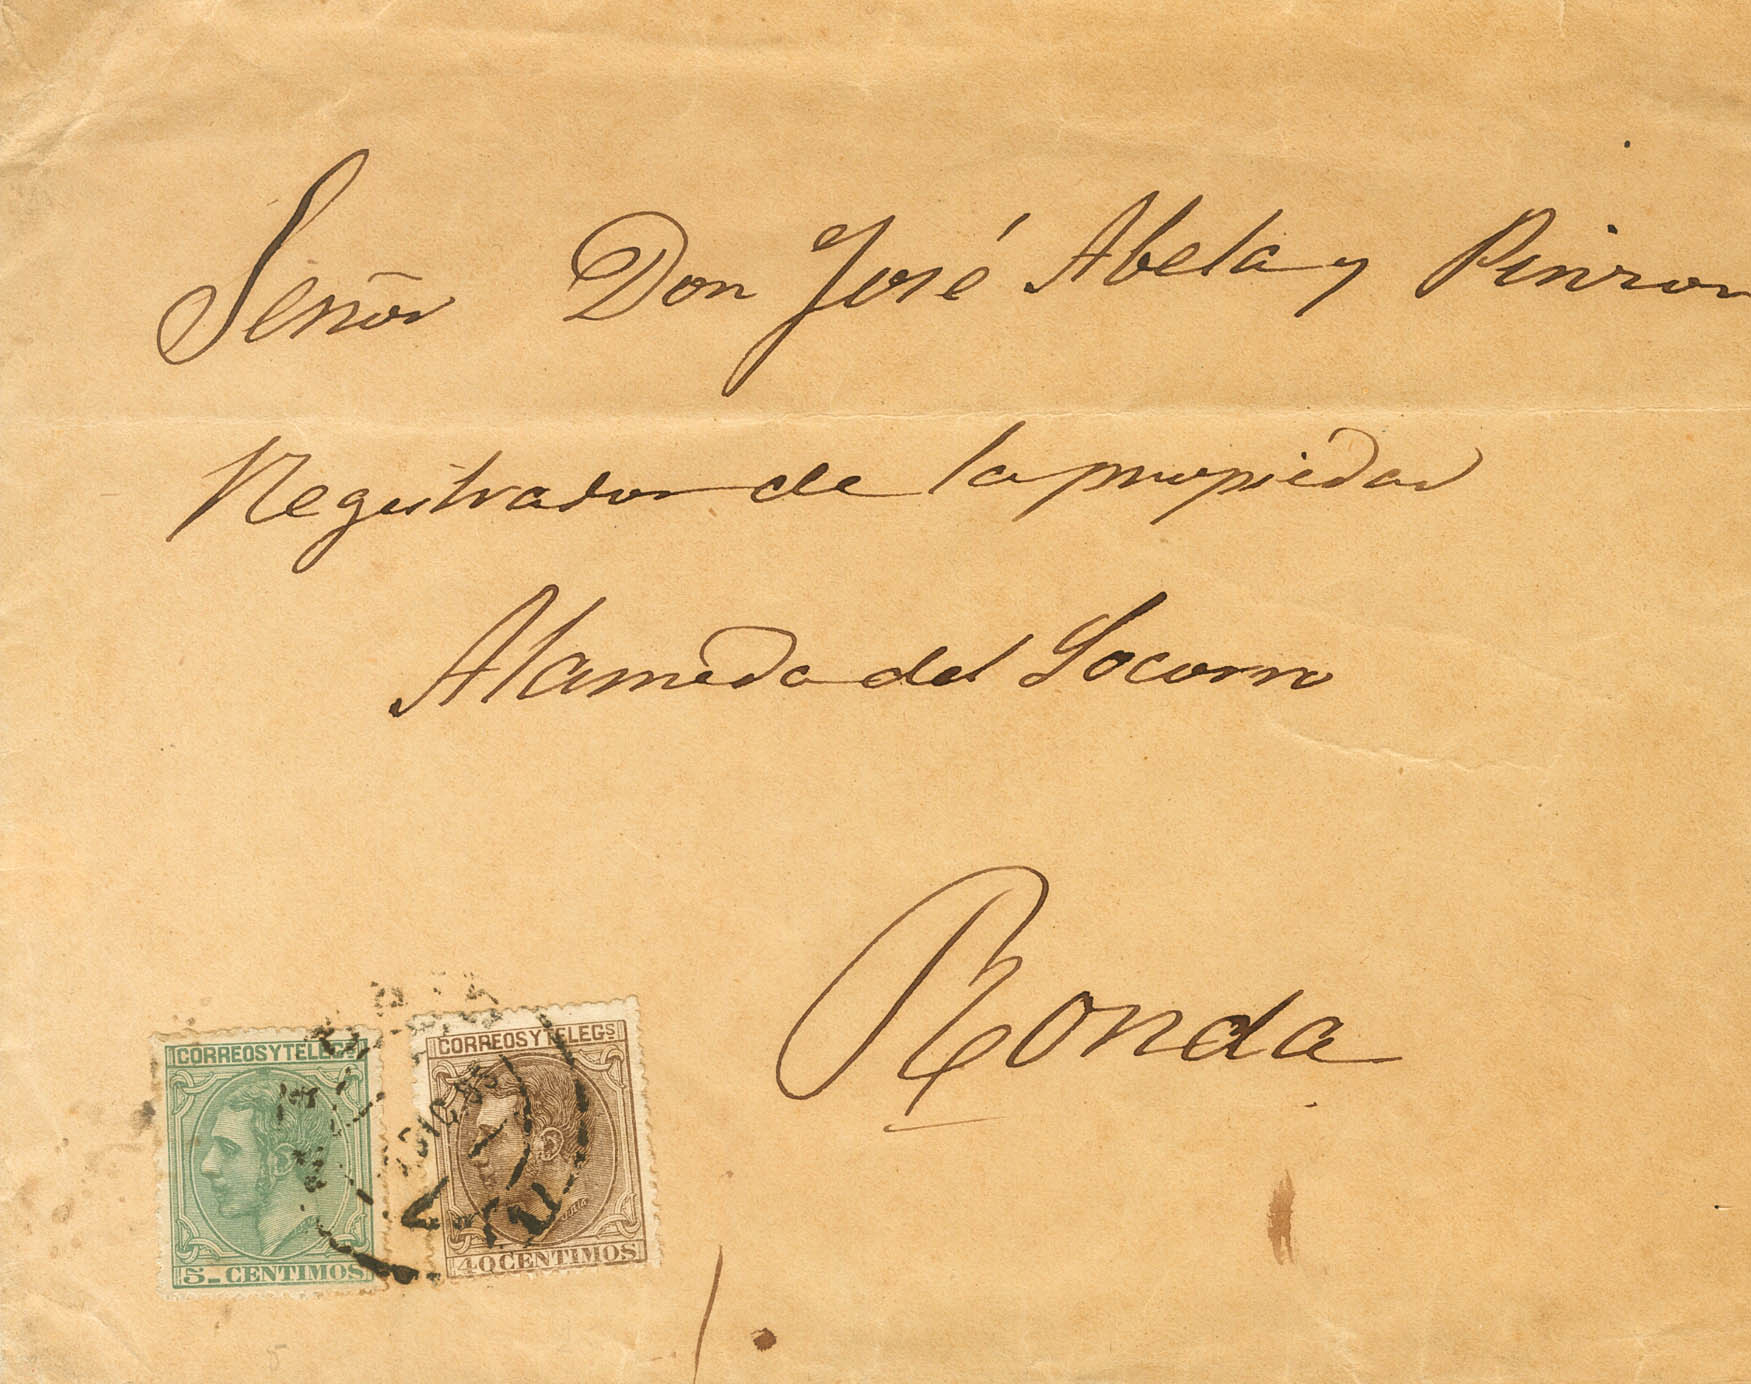 Señor Don José Abela y Pinzon
Registrador de la propiedad
Alameda del Socorro
Ronda
CORREOS Y TELEGS
5 CENTIMOS
CORREOS Y TELEGS
40 CENTIMOS